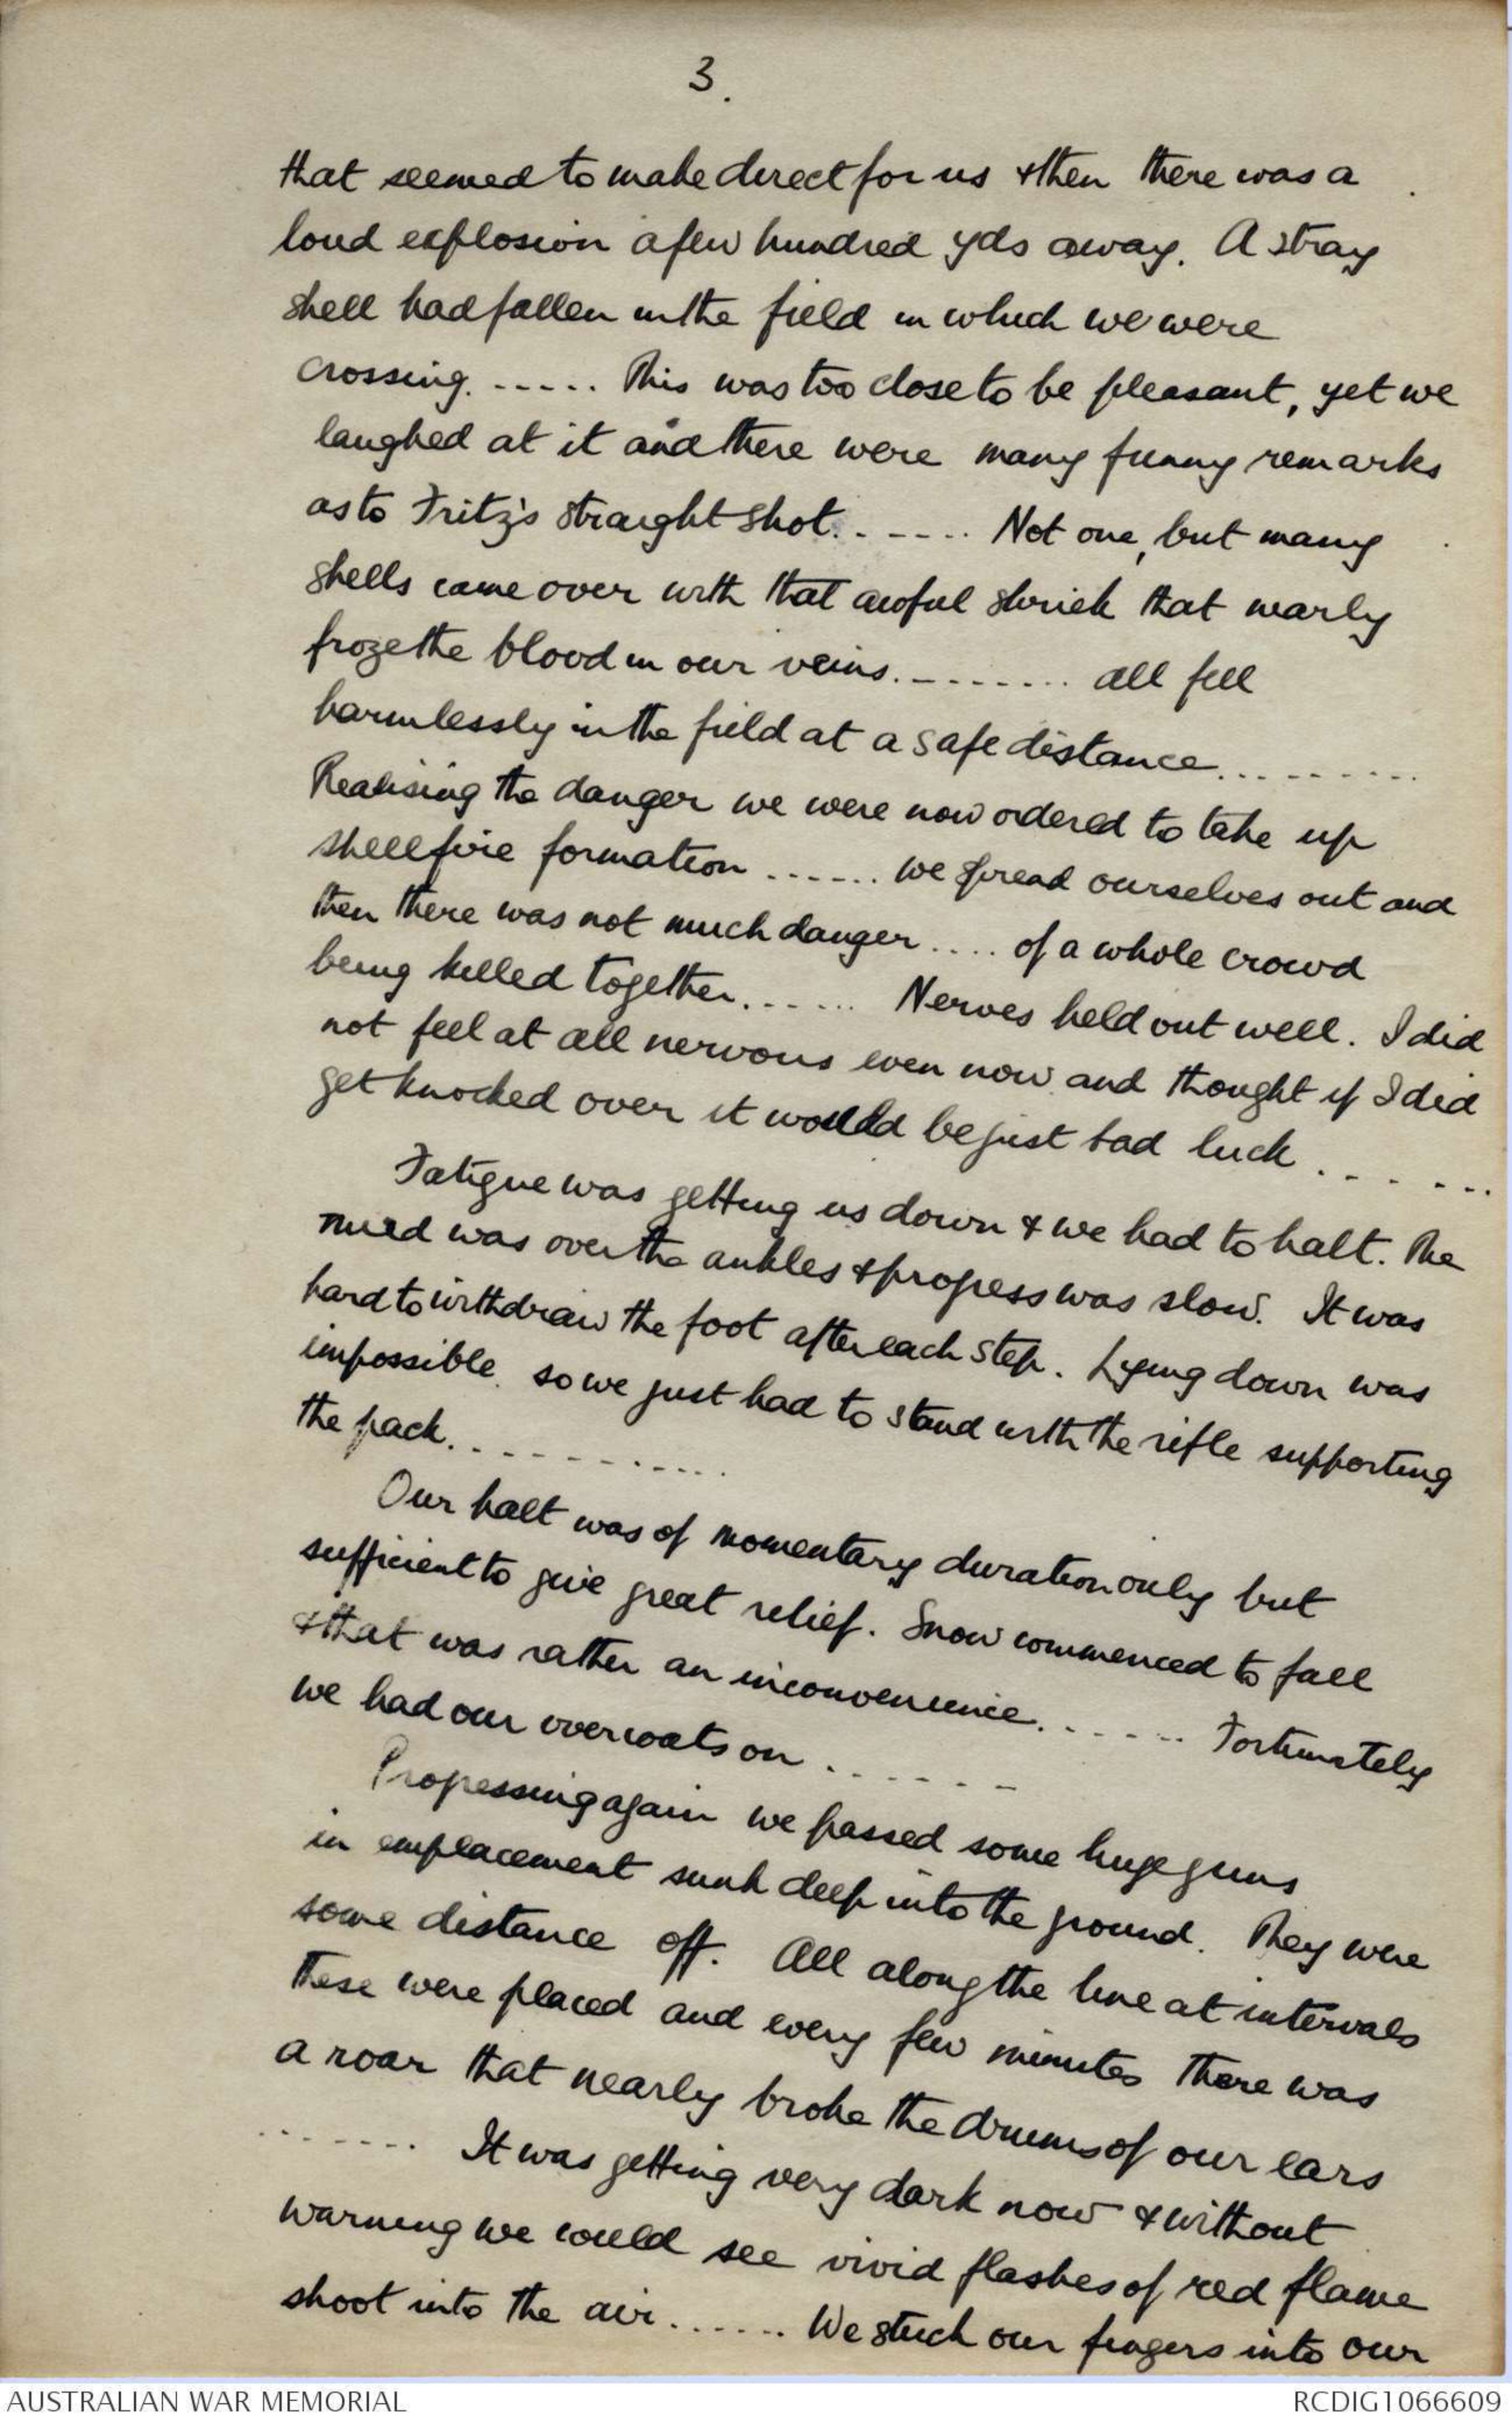 3.
that seemed to make direct for us & then there was a
loud explosion a few hundred yds away. A stray
shell had fallen in the field in which we were
crossing. ----- This was too close to be pleasant, yet we
laughed at it and there were many funny remarks
as to Fritz's straight shot. ------ Not one, but many
shells came over with that awful shriek that nearly
froze the blood in our veins. -------- all fell
harmlessly in the field at a safe distance..........
Realising the danger we were now ordered to take up
shellfire formation ...... we spread ourselves out and
then there was not much danger .... of a whole crowd
being killed together....... Nerves held out well. I did
not feel at all nervous even now and thought if I did
get knocked over it would be just bad luck .......
Fatigue was getting us down & we had to halt. The
mud was over the ankles & progress was slow. It was
hard to withdraw the foot after each step. Lying down was
impossible so we just had to stand with the rifle supporting
the pack. ..........
Our halt was of momentary duration only but
sufficient to give great relief. Snow commenced to fall
& that was rather an inconvenience....... Fortunately
we had our overcoats on .......
Progressing again we passed some huge guns
in emplacement sunk deep into the ground. They were
some distance off. All along the line at intervals
these were placed and every few minutes there was
a roar that nearly broke the drums of our ears
....... It was getting very dark now & without
warning we could see vivid flashes of red flame
shoot into the air....... We stuck our fingers into our
AUSTRALIAN WAR MEMORIAL
RCDIG1066609